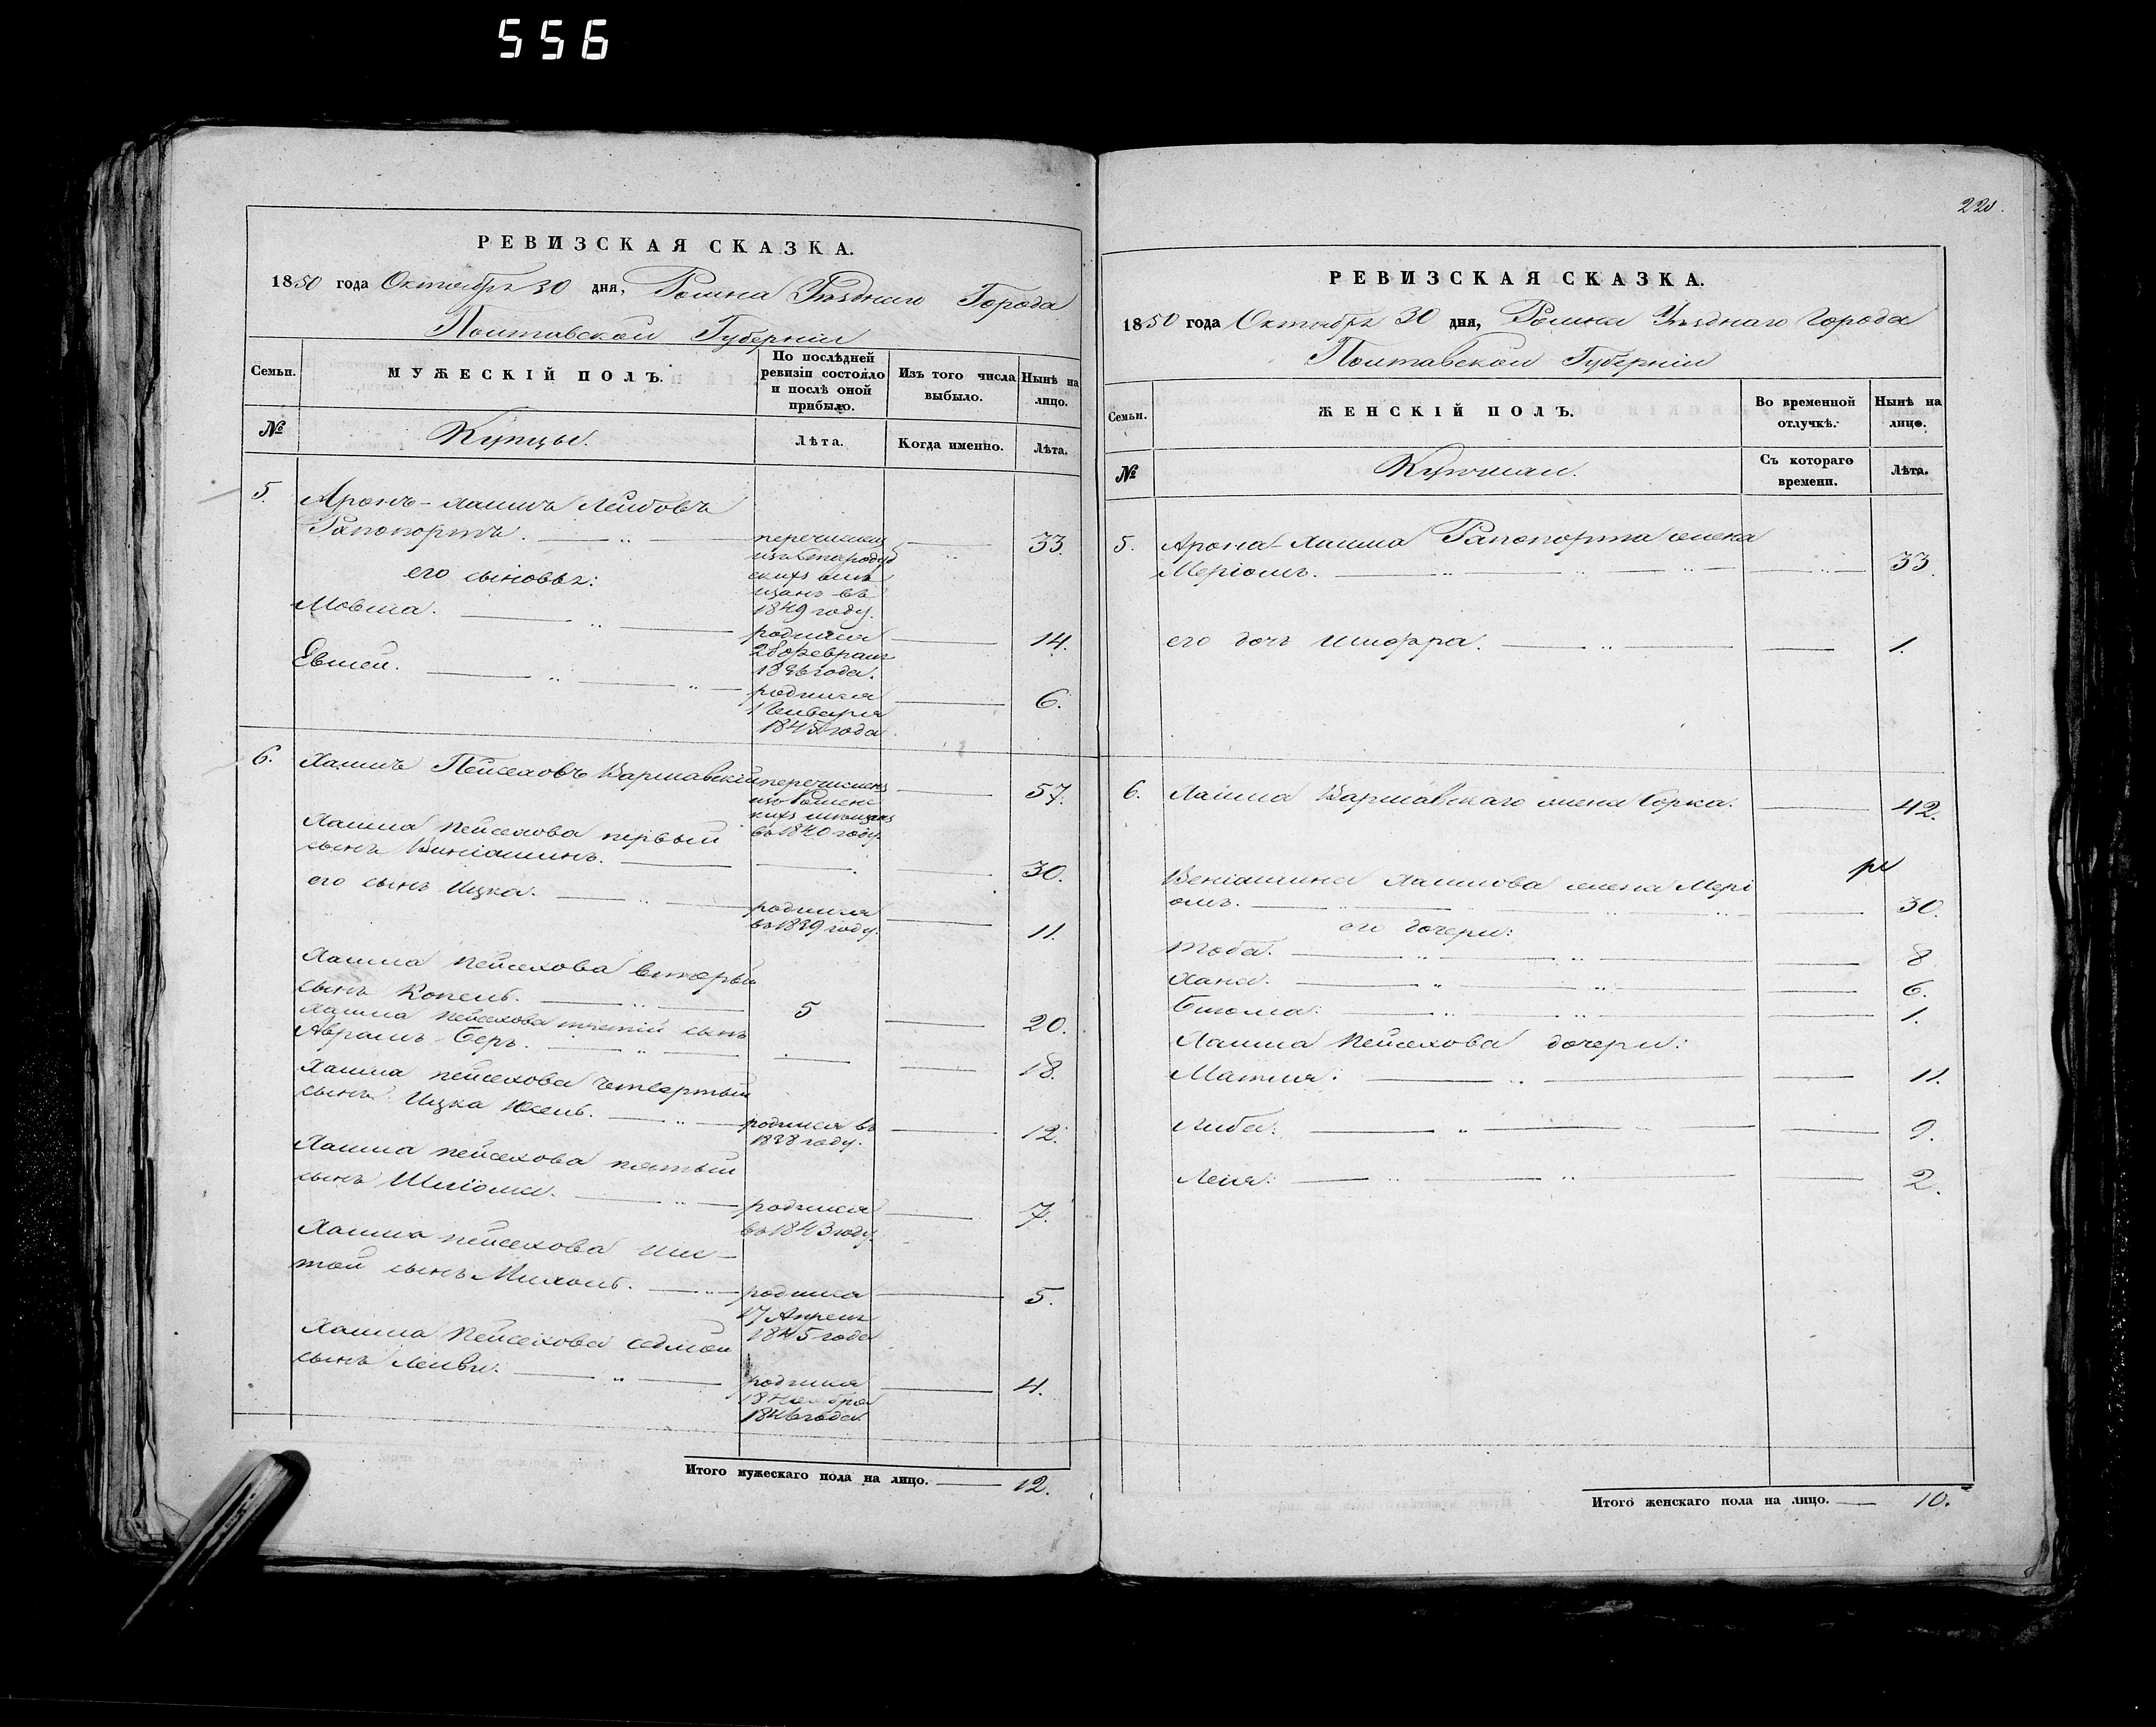 556
РЕВИЗСКАЯ СКАЗКА.
1850 года Октября 30 дня, Ромна Уѣзднаго Города
Полтавской Губерніи
Семьи.
МУЖЕСКІЙ ПОЛЪ.
По послѣдней ревизіи состояло и послѣ оной прибыло.
Изъ того числа выбыло.
Нынѣ на лицо.
№
Купцы.
Лѣта.
Когда именно.
Лѣта.
5. Аронъ-Хаимъ Лейбовъ
Рапопортъ. перечислен 33.
изъ Стародуб
скихъ мѣщ
щанъ въ
1849 году.
его сыновья:
Мовша. родился 14.
26 февраля
1836 года.
Евшей. родился 6.
1 Генваря
1845 года
6. Хаимъ Пейсеховъ Варшавскій перечисленъ 57.
изъ Роменс
кихъ мѣщанъ
въ 1840 году.
Хаима Пейсехова первый
сынъ Виніаминъ. 30.
его сынъ Ицка. родился 11.
въ 1839 году.
Хаима Пейсехова вторый
сынъ Копель. 5 20.
Хаима Пейсехова третій сынъ
Аврамъ Беръ. 18.
Хаима Пейсехова четвертый
сынъ Ицка Хсель. родился въ 12.
1838 году.
Хаима Пейсехова пятый
сынъ Шліома. родился 7.
въ 1843 году.
Хаима Пейсехова шес-
той сынъ Михель. родился 5.
17 Апреля
1845 года
Хаима Пейсехова седмой
сынъ Левви. родился 4.
18 Ноября
1846 года.
Итого мужескаго пола на лицо. 12.
220.
РЕВИЗСКАЯ СКАЗКА.
1850 года Октября 30 дня, Ромна Уѣзднаго Города
Полтавской Губерніи
Семьи.
ЖЕНСКІЙ ПОЛЪ.
Во временной отлучкѣ.
Нынѣ на лицо.
№
Купчихи.
Съ котораго времени.
Лѣта.
5. Арона-Хаима Рапопорта жена
Меріомъ. 33.
его дочь Шифра. 1.
6. Хаима Варшавскаго жена Сорка. 42.
Веніамина Хаимова жена Мері
омъ. 30.
его дочери:
Тоба. 8.
Хана. 6.
Блюма: 1.
Хаима Пейсехова дочери:
Матля: 11.
Либа: 9.
Лея: 2.
Итого женскаго пола на лицо. 10.